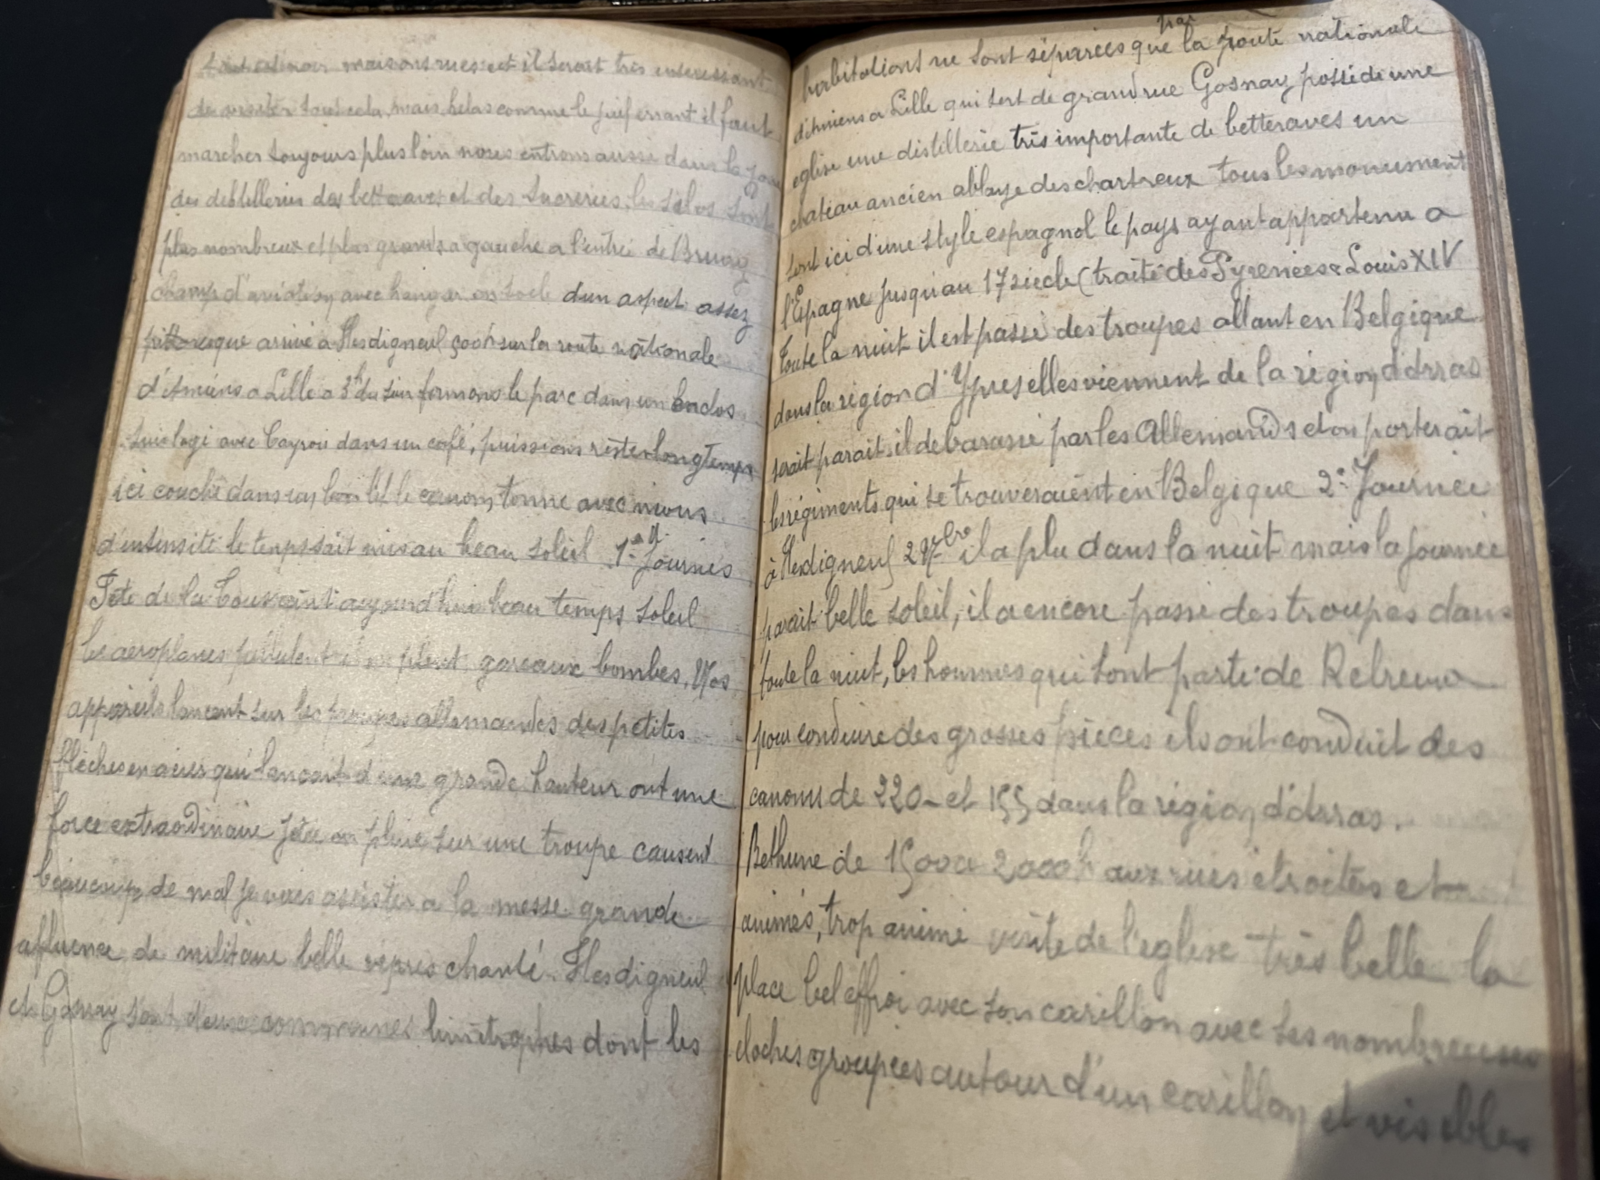 tout est noir maisons rues et il serait très interessant
de visiter tout cela, mais, helas comme le juif errant il faut
marcher toujours plus loin nous entrons aussi dans le
des distilleries de betteraves et des sucreries, les silos sont
plus nombreux et plus grands a gauche a l'entrée de Bruay
champ d'aviation avec hangar en toile d'un aspect assez
pittoresque arrivé à Hesdigneul 500h sur la route nationale
d'Amiens a Lille a 3h du soir formons le parc dans un enclos
suis logé avec Cayroi dans un café, puissions rester longtemps
ici couché dans un bon lit le canon tonne avec moins
d'intensité le temps s'ait mis au beau soleil 1re Journée
Fête de la Toussaint aujourd'hui beau temps soleil
les aeroplanes pullulent il pleut gareaux bombes, Nos
appareils lancent sur les troupes allemandes des petites
flèches en acier qui lancait d'une grande hauteur ont une
force extraordinaire jetée en pluie sur une troupe causent
beaucoup de mal je vais assister a la messe grande
affluence de militaire belle vepres chanté. Hesdigneul
et Gosnay sont deux communes limitrophes dont les
habitations ne sont séparées que par la route nationale
d'Amiens a Lille qui sert de grand rue Gosnay possède une
eglise une distillerie très importante de betteraves un
chateau ancien abbaye des chartreux tous les monument
sont ici d'une style espagnol le pays ayant appartenu a
l'Espagne jusqu'au 17 siecle (traité des Pyrenées Louis XIV
Toute la nuit il est passé des troupes allant en Belgique
dans la région d'Ypres elles viennent de la région d'Arras
serait parait-il debarassé par les Allemands et on porterait
les régiments qui se trouveraient en Belgique 2e Journée
à Hesdigneul 2 9bre il a plu dans la nuit mais la journée
parait belle soleil, il a encore passé des troupes dans
toute la nuit, les hommes qui sont parti de Rebreuve
pour conduire des grosses pièces ils ont conduit des
canons de 220 et 155 dans la région d'Arras.
Bethune de 1500 a 2000h aux rues étroites et
animés, trop animé visite de l'eglise très belle la
place bel effroi avec son carillon avec ses nombreuses
cloches groupées autour d'un carillon et visibles